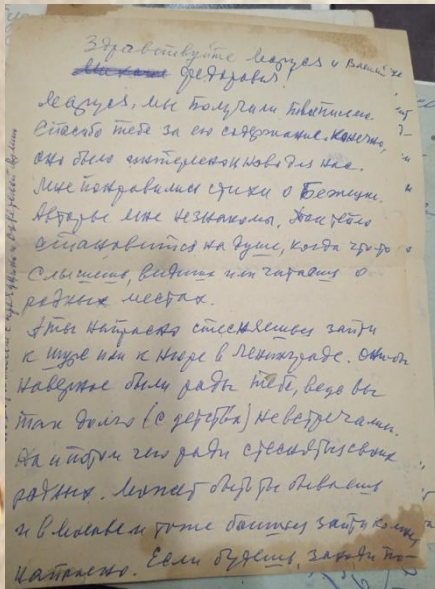 Здравствуйте Маруся и Василий
Михаил Федорович!
Маруся, мы получили твоё письмо.
Спасибо тебе за его содержание. Конечно,
оно было интересно и ново для нас.
Мне понравились стихи о Бежецке.
Авторы мне незнакомы. Так тепло
становится на душе, когда что-то
слышишь, видишь или читаешь о
родных местах.
А ты напрасно стесняешься зайти
к Шуре или к Нюре в Ленинграде. Они бы
наверное были рады тебе, ведь вы
так долго (с детства) не встречались.
Да и потом чего ради стесняться своих
родных. Может быть ты бываешь
и в Москве и тоже боишься зайти ко мне,
напрасно. Если будешь, заходи по-